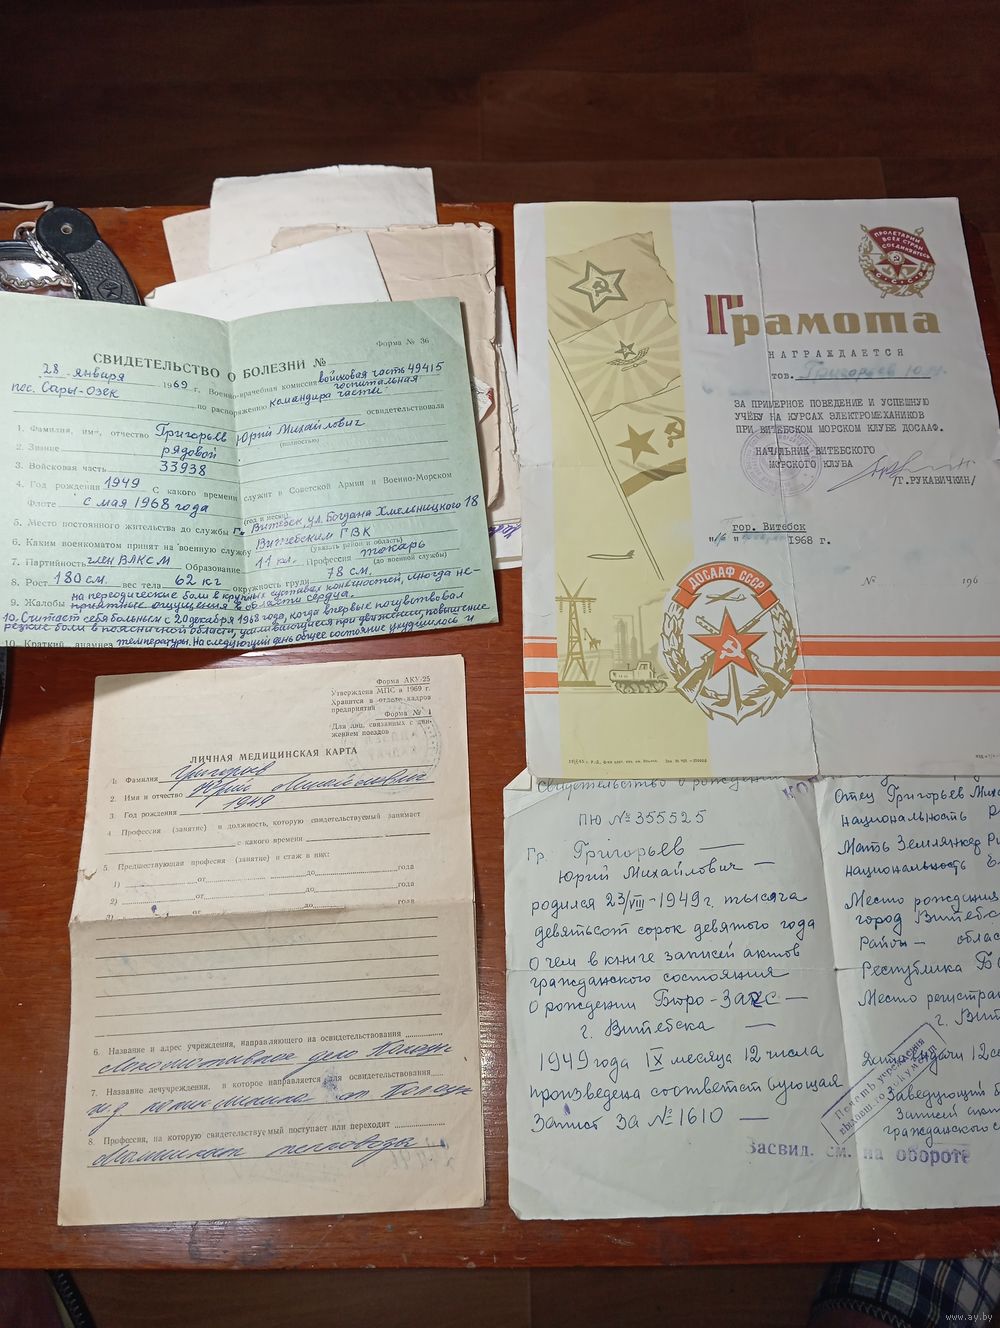 Форма № 36
СВИДЕТЕЛЬСТВО О БОЛЕЗНИ №
28 января 1969 г. Военно-врачебная комиссия войсковая часть 49415
госпитальная
пос. Сары-Озек по распоряжению командира части
освидетельствовала
1. Фамилия, имя, отчество Григорьев Юрий Михайлович
(полностью)
2. Звание рядовой
3. Войсковая часть 33938
4. Год рождения 1949 С какого времени служит в Советской Армии и Военно-Морском
Флоте с мая 1968 года
(год и месяц)
5. Место постоянного жительства до службы г. Витебск, ул. Богдана Хмельницкого 18
(указать район и область)
6. Каким военкоматом принят на военную службу Витебским ГВК
7. Партийность член ВЛКСМ Образование 11 кл. Профессия токарь
(до военной службы)
8. Рост 180 см. вес тела 62 кг окружность груди 78 см,
9. Жалобы на периодические боли в крупных суставах конечностей, иногда не-
приятные ощущения в области сердца.
10. Считает себя больным с 20 декабря 1968 года, когда впервые почувствовал
резкие боли в поясничной области, усиливающиеся при движении, повышение
10. Краткий анамнез температуры. На следующий день общее состояние ухудшилось и
ПРОЛЕТАРИИ
ВСЕХ СТРАН
СОЕДИНЯЙТЕСЬ
Грамота
НАГРАЖДАЕТСЯ
тов. Григорьев Ю.М.
ЗА ПРИМЕРНОЕ ПОВЕДЕНИЕ И УСПЕШНУЮ
УЧЁБУ НА КУРСАХ ЭЛЕКТРОМЕХАНИКОВ
ПРИ ВИТЕБСКОМ МОРСКОМ КЛУБЕ ДОСААФ.
НАЧАЛЬНИК ВИТЕБСКОГО
МОРСКОГО КЛУБА
/Г.РУКАВИЧКИН/
гор. Витебск
1968 г.
№ 196
ДОСААФ СССР
Форма АКУ-25
Утверждена МПС в 1969 г.
Хранится в отделе кадров
предприятия
Форма № 1
Для лиц, связанных с дви-
жением поездов
ЛИЧНАЯ МЕДИЦИНСКАЯ КАРТА
1. Фамилия Григорьев
2. Имя и отчество Юрий Михайлович
3. Год рождения 1949
4 Профессия (занятие) и должность, которую свидетельствуемый занимает
с какого времени
5. Предшествующая професия (занятие) и стаж в них:
1) от до года
2) от до года
3)
6. Название и адрес учреждения, направляющего на освидетельствование
Локомотивное депо Полоцк
7. Название лечучреждения, в которое направляется для освидетельствования
ж.д поликлиника ст Полоцк
8. Профессия, на которую свидетельствуемый поступает или переходит
Свидетельство о рождении
ПЮ № 355525
Гр. Григорьев
Юрий Михайлович
родился 23/VIII-1949 г. тысяча
девятьсот сорок девятого года
О чем в книге записей актов
гражданского состояния
о рождении Бюро-ЗАГС
г. Витебска
1949 года IX месяца 12 числа
произведена соответствующая
Запись За № 1610
Отец Григорьев Миха
национальность
Мать Землянкер
национальность
Место рождения
город Витебс
Район — облас
Республика Б
Место регистрац
г. Вит
выдачи 12 се
Заведующий
Записей акт
гражданского с
Засвид. см. на обороте
www.ay.by